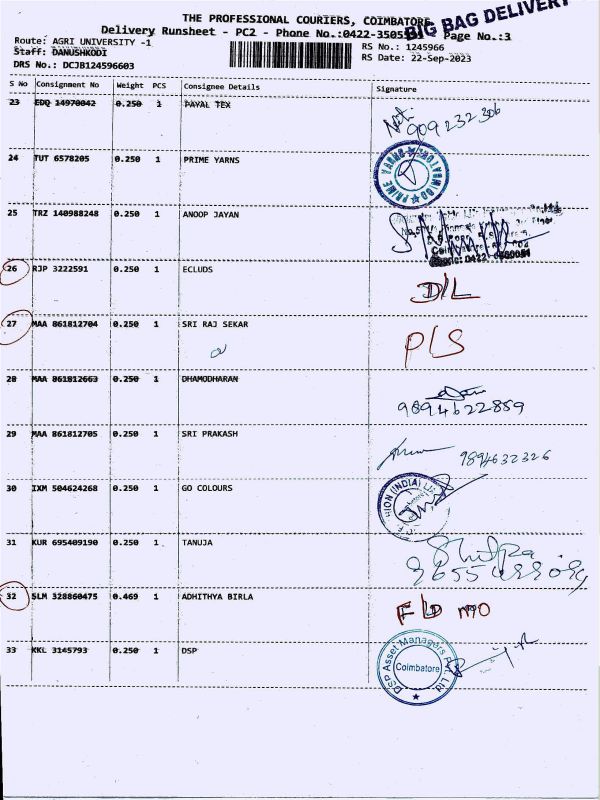 THE PROFESSIONAL COURIERS, COIMBATORE
BIG BAG DELIVERY
Delivery Runsheet - PC2 - Phone No.:0422-3505 Page No.:3
Route: AGRI UNIVERSITY -1
RS No.: 1245966
Staff: DANUSHKODI
RS Date: 22-Sep-2023
DRS No.: DCJB124596603
S No Consignment No Weight PCS Consignee Details Signature
23 EDQ 14970042 0.250 1 PAYAL TEX
909232306
24 TUT 6578205 0.250 1 PRIME YARNS
PRIME YARNS COIMBATORE
25 TRZ 140988248 0.250 1 ANOOP JAYAN
26 RJP 3222591 0.250 1 ECLUDS
D/L
27 MAA 861812704 0.250 1 SRI RAJ SEKAR
PLS
28 MAA 861812663 0.250 1 DHAMODHARAN
9894622859
29 MAA 861812705 0.250 1 SRI PRAKASH
9894632326
30 IXM 504624268 0.250 1 GO COLOURS
(INDIA)
31 KUR 695409190 0.250 1 TANUJA
Shilpa
32 SLM 328860475 0.469 1 ADHITHYA BIRLA
33 KKL 3145793 0.250 1 DSP
DSP Asset Managers Pvt. Ltd
Coimbatore